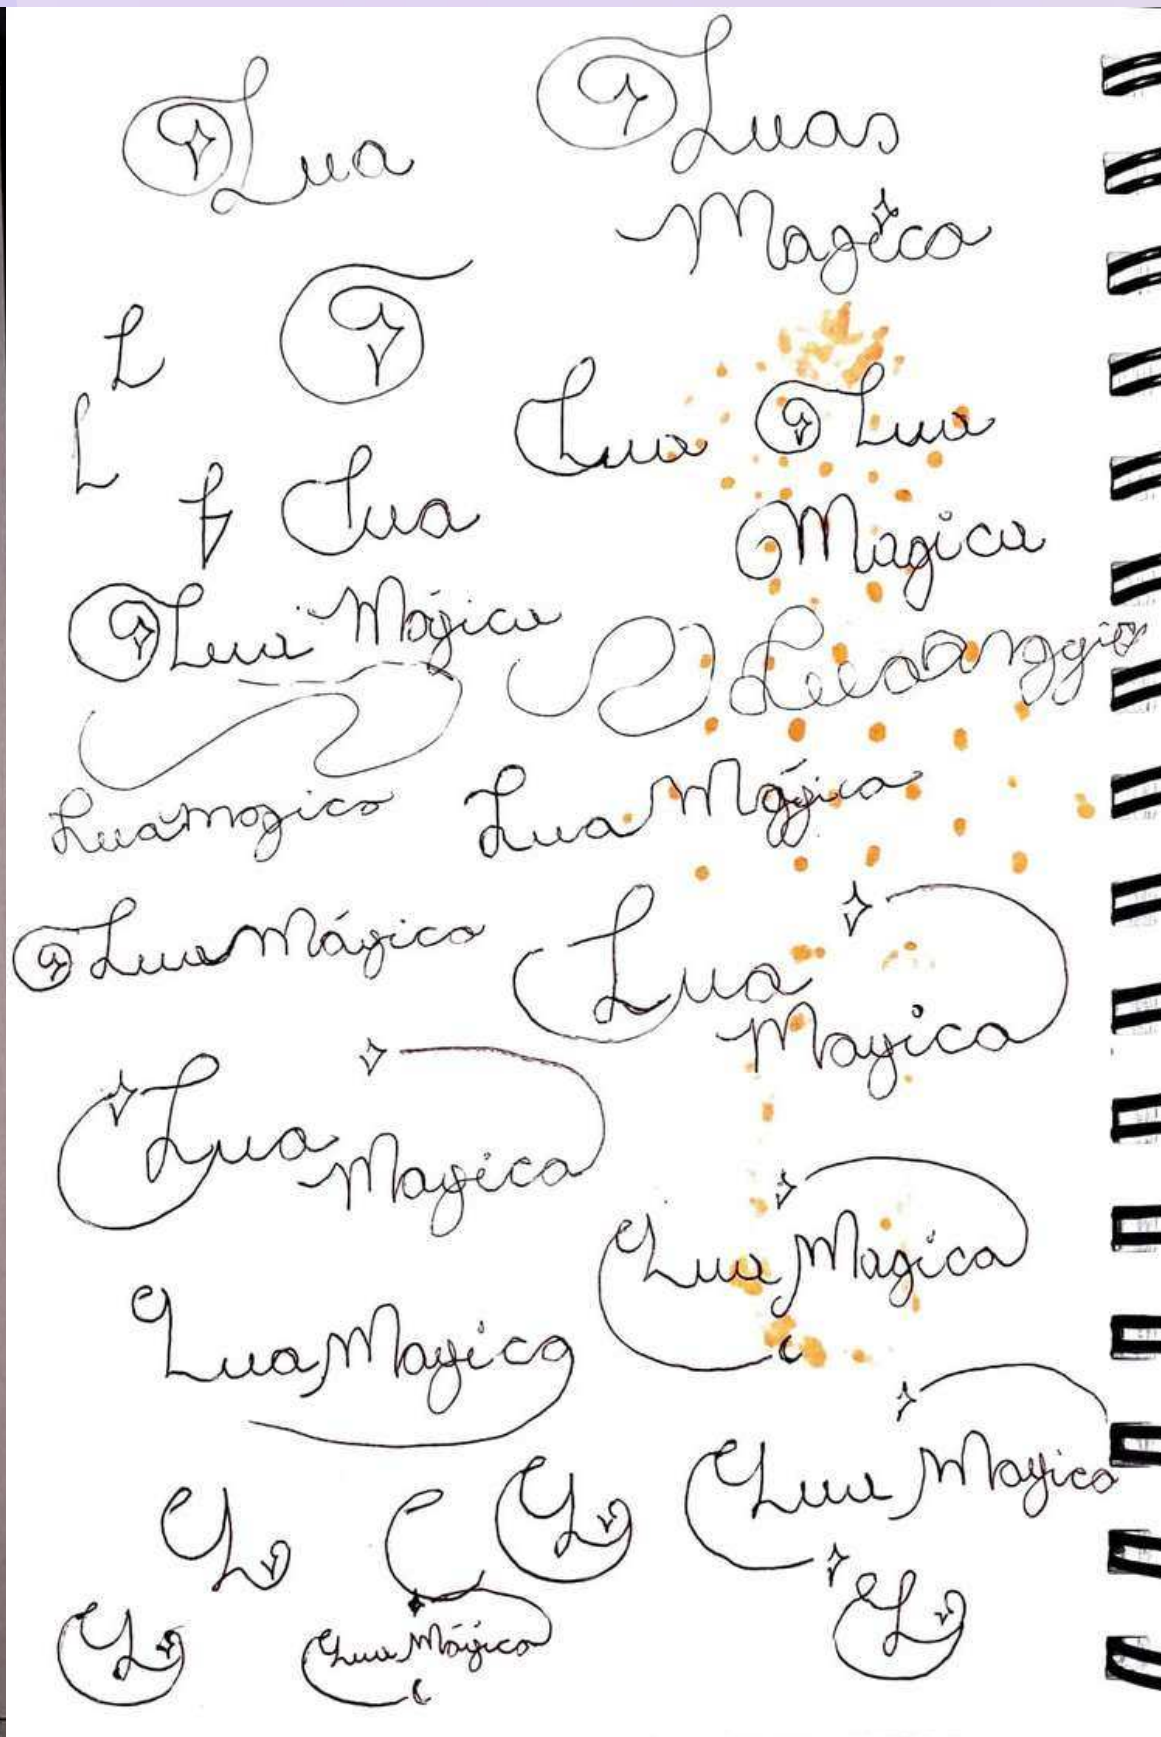 Lua
Luas
Magica
L
L
L
Lua
Lua
Lua
Magica
Lua Mágica
Luamagica
Lua Mágica
Lua Mágica
Lua
Magica
Lua
Magica
Lua Magica
Lua Magica
Lua Magica
L
L
L
Lua Mágica
L